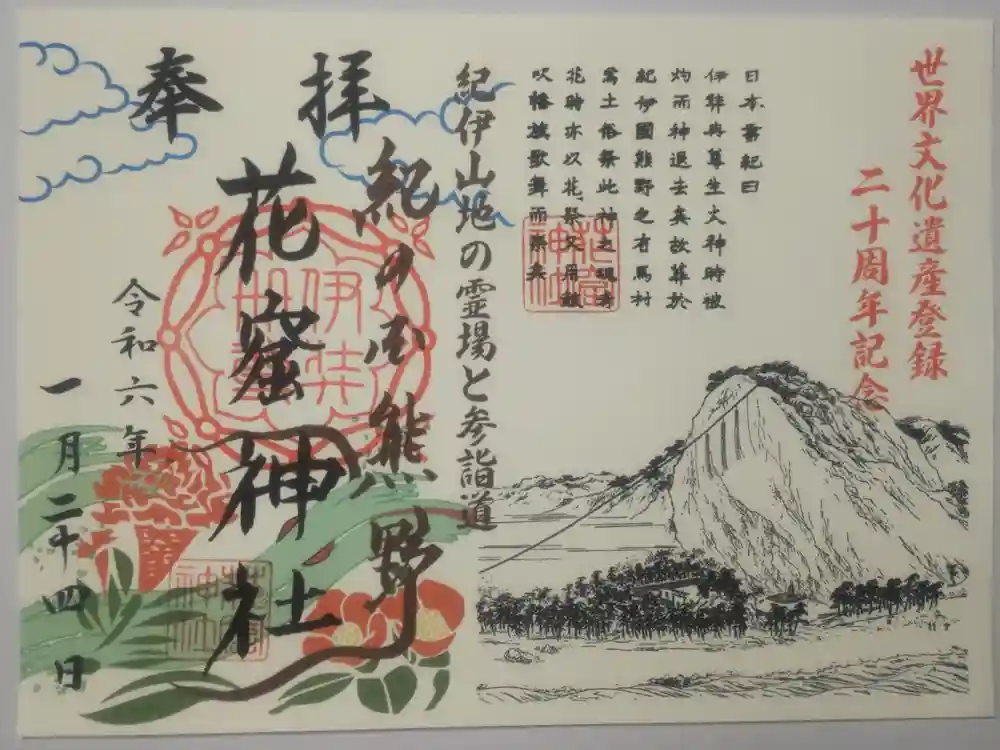 世界文化遺産登録
二十周年記念
日本書紀曰
伊弉冉尊生火神時被
灼而神退去矣故葬於
紀伊國熊野之有馬村
焉土俗祭此神之魂者
花時亦以花祭又用鼓
吹幡旗歌舞而祭矣
花窟神社
紀伊山地の霊場と参詣道
拝
奉
紀の国熊野
花窟神社
伊弉冊尊
令和六年
一月二十四日
花窟神社